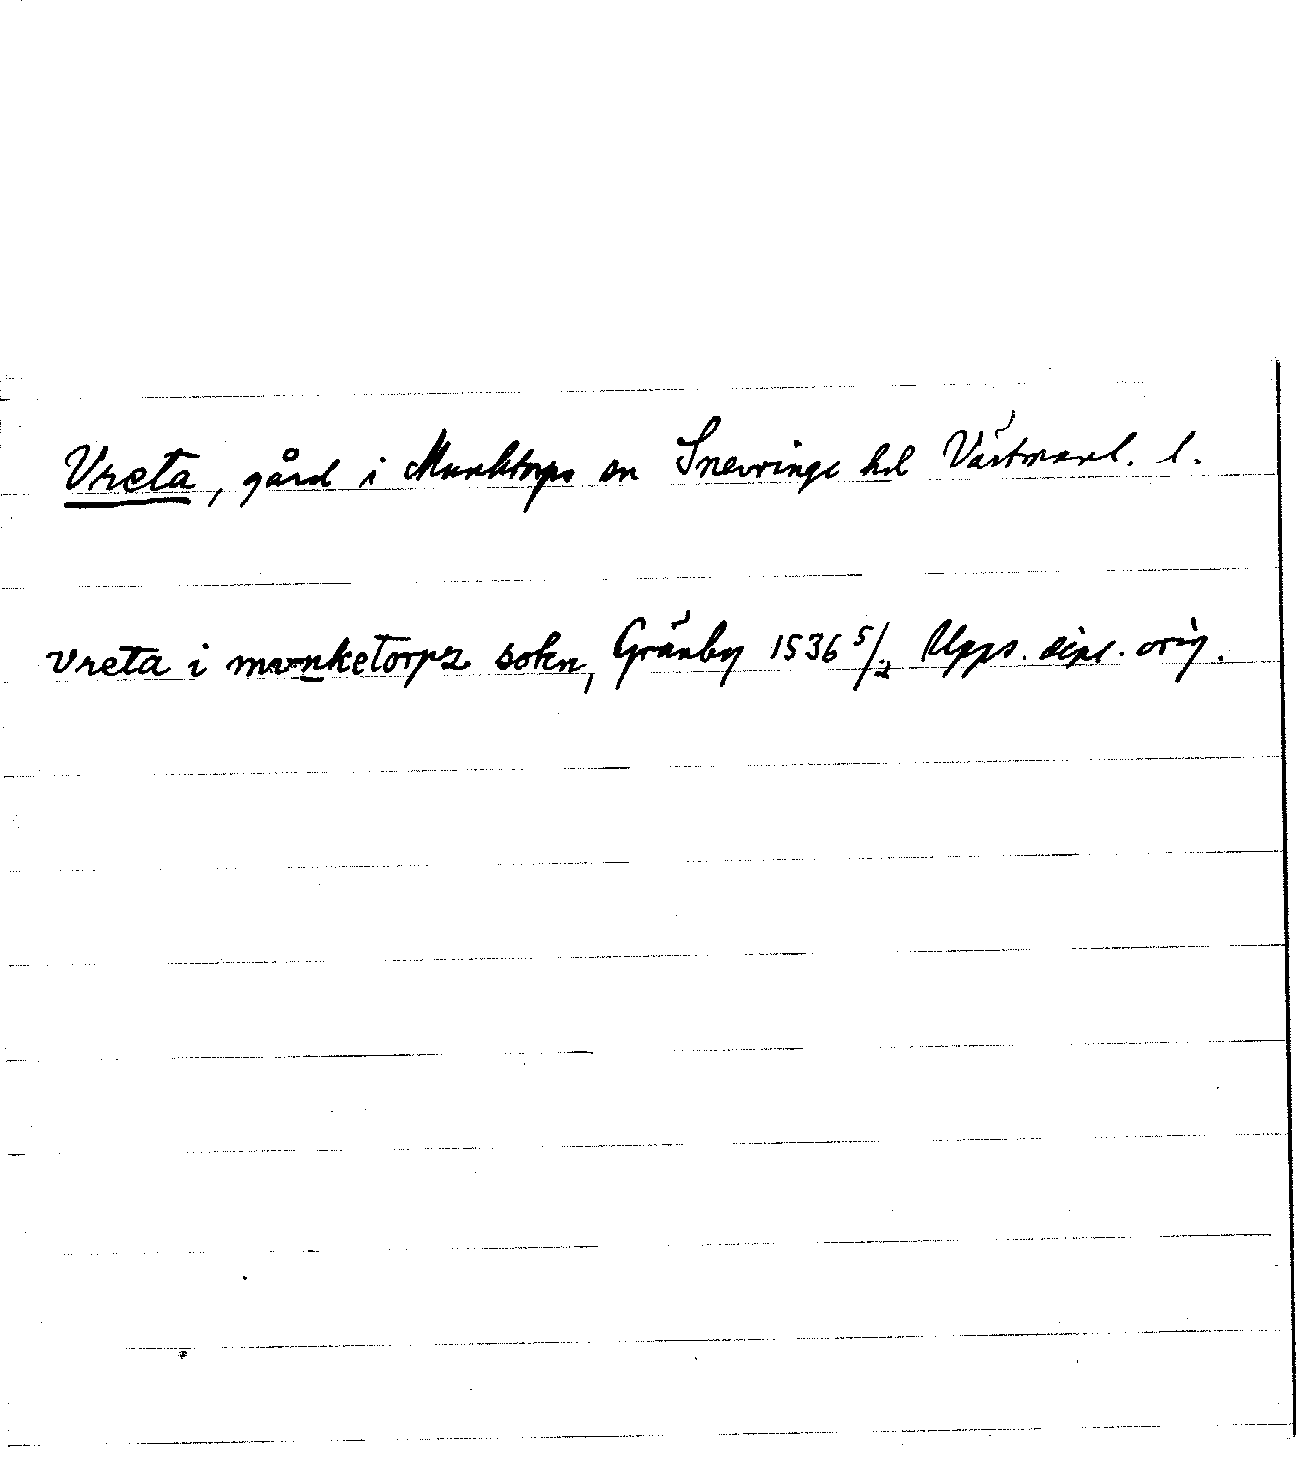 Vreta, gård i Munktorps sn Snevringe hd Västmanl. l.
vreta i mwnketorpz sokn, Gränby 1536 5/2 Upps. dipl. orig.